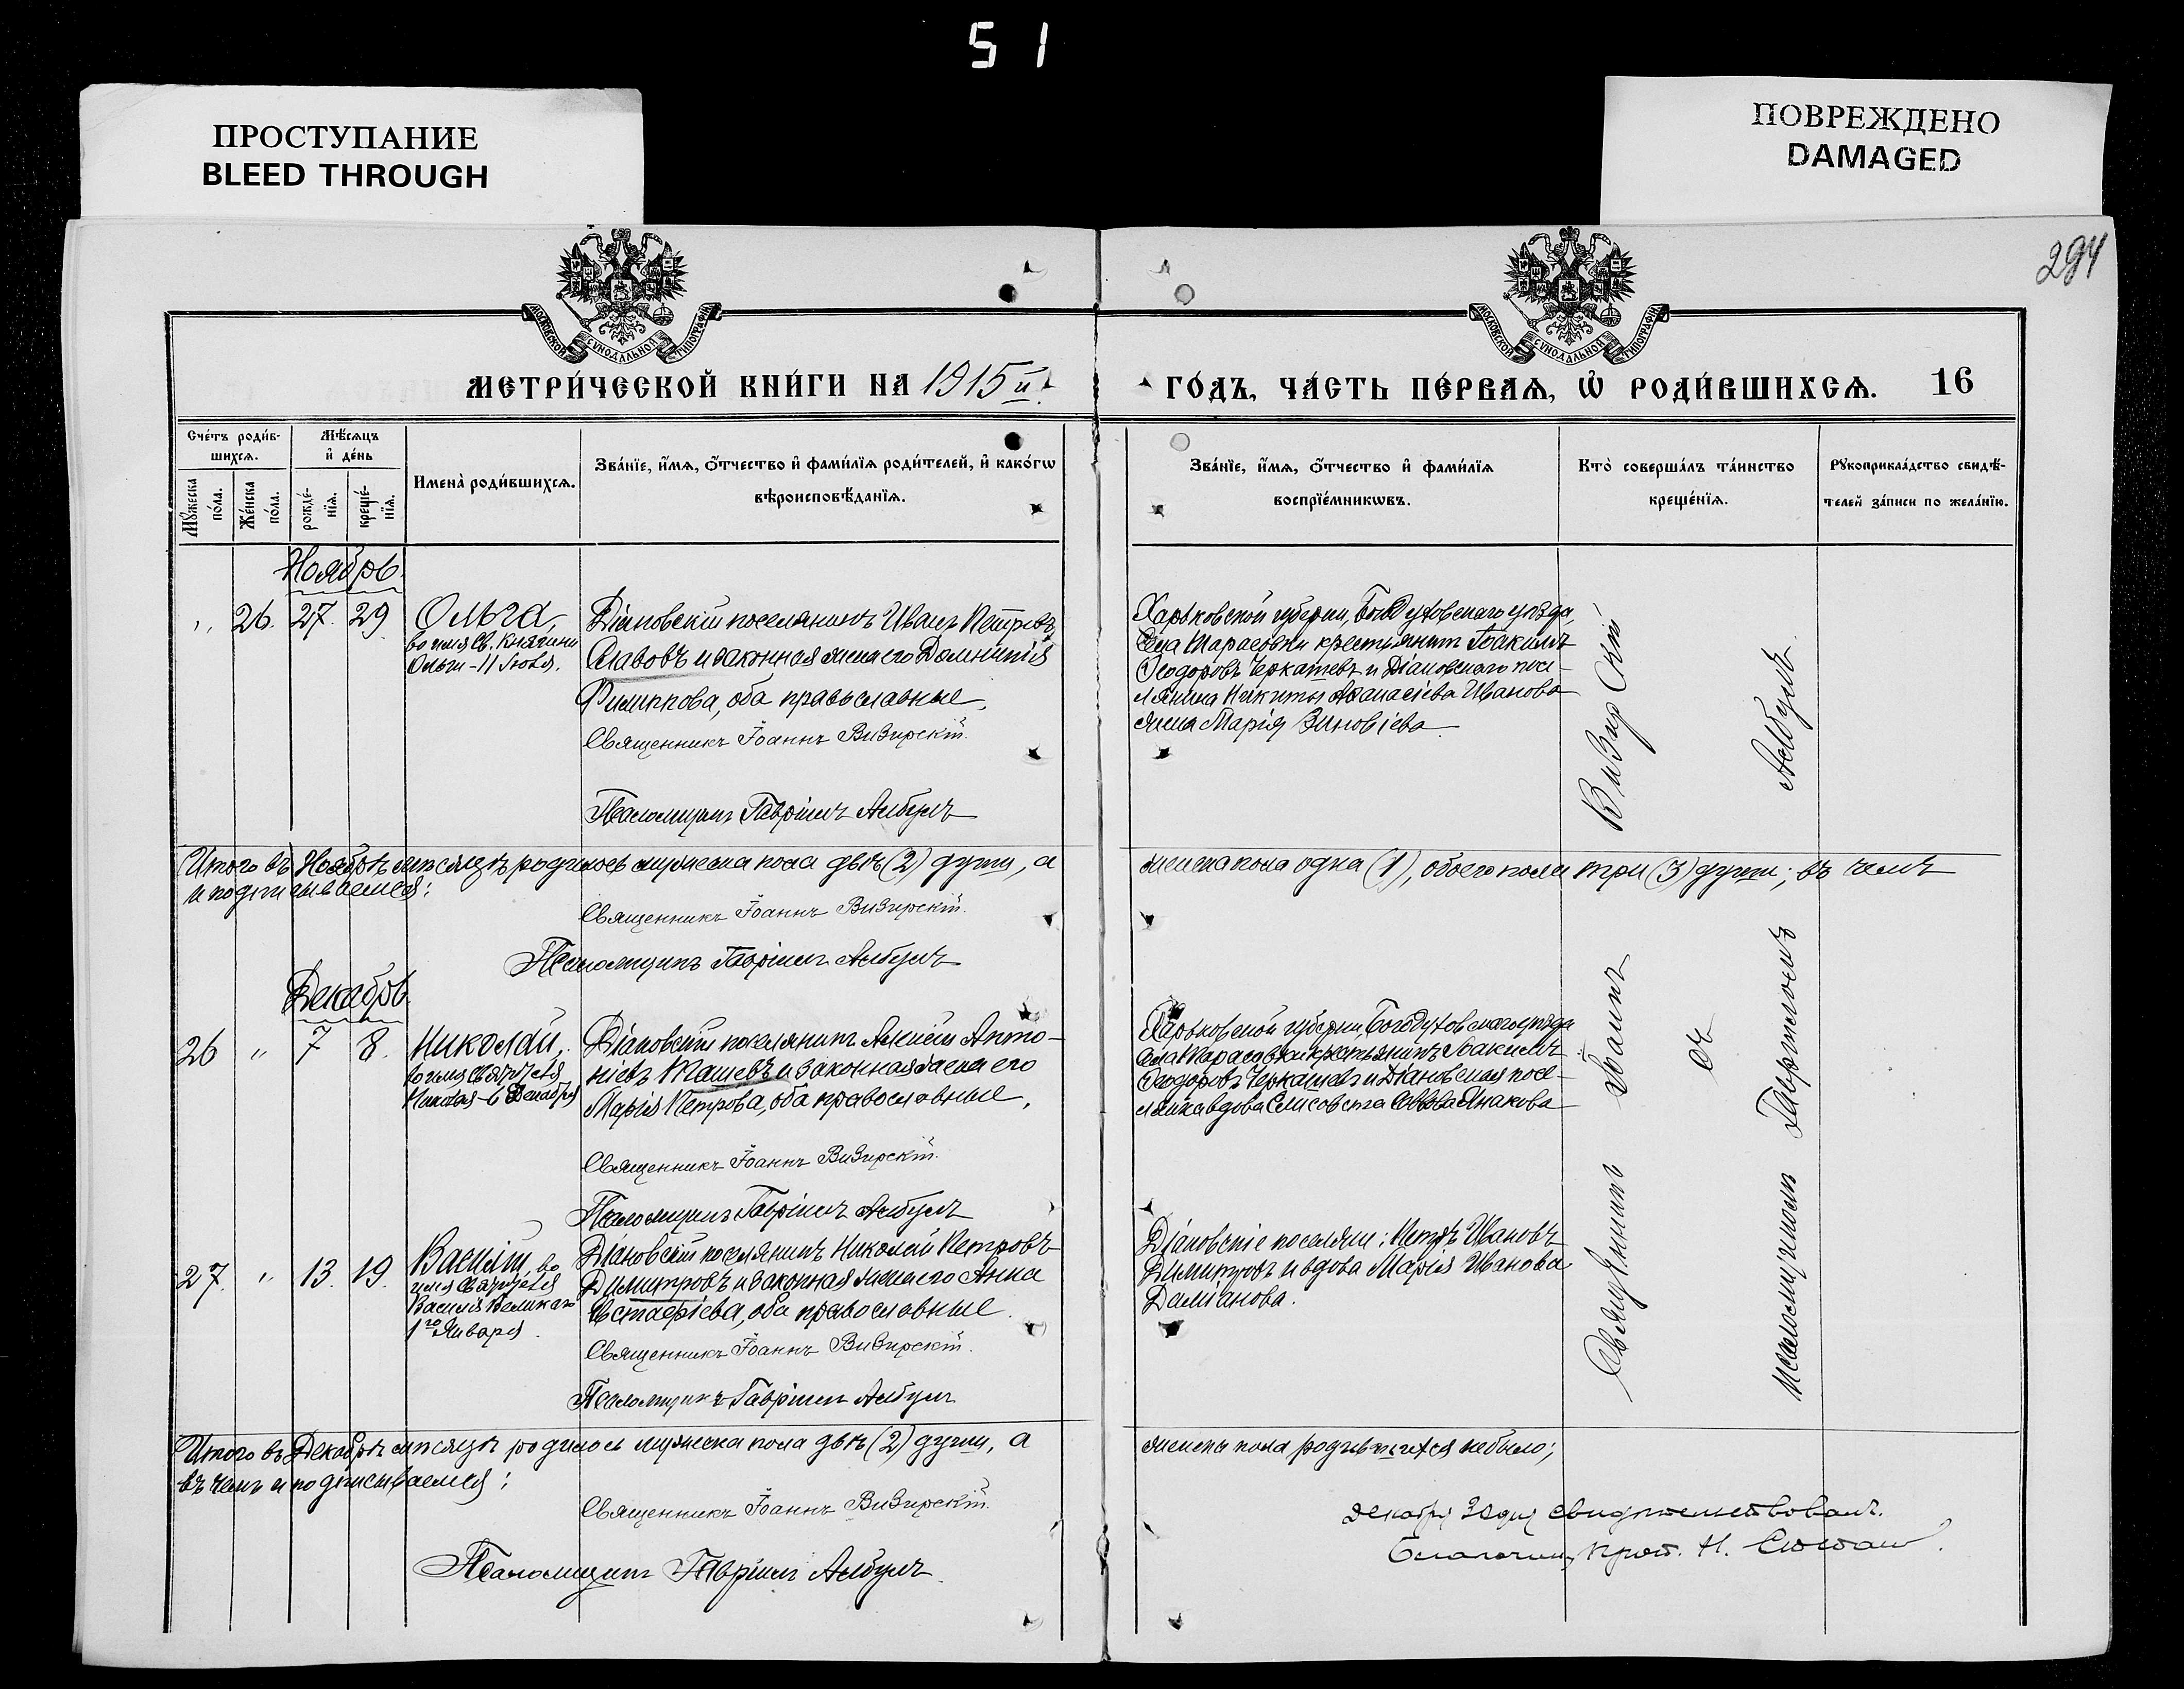 51
ПРОСТУПАНИЕ
BLEED THROUGH
ПОВРЕЖДЕНО
DAMAGED
294
МОСКОВСКОЙ СѴНОДАЛЬНОЙ ТИПОГРАФІИ
МОСКОВСКОЙ СѴНОДАЛЬНОЙ ТИПОГРАФІИ
МЕТРИ́ЧЕСКОЙ КНИ́ГИ НА 1915 й
ГО́ДЪ, ЧА́СТЬ ПЕ́РВАѦ, Ѽ РОДИ́ВШИХСѦ. 16
Сче́тъ роди́вшихсѧ.
Мѣ́сѧцъ и҆ де́нь
Мꙋ́жеска по́ла.
Же́нска по́ла.
рожде́нїѧ.
креще́нїѧ.
Имена̀ роди́вшихсѧ.
Зва́нїе, и҆́мѧ, ѻ҆́тчество и҆ фами́лїѧ роди́телей, и҆ како́гѡ
вѣроисповѣ́данїѧ.
Зва́нїе, и҆́мѧ, ѻ҆́тчество и҆ фами́лїѧ
воспрїе́мникѡвъ.
Кто̀ соверша́лъ та́инство
креще́нїѧ.
Рꙋкоприкла́дство свидѣ́-
телей за́писи по жела́нїю.
Ноябрь.
„ 26. 27. 29. Ольга,
во имя Св. Княгини
Ольги - 11 Іюля.
Діановскій поселянинъ Иванъ Петровъ
Славовъ и законная жена его Домникія
Филиппова, оба православные.
Священникъ Іоаннъ Визирскій.
Псаломщикъ Гавріилъ Албулъ
Харьковской губерніи, Богодуховскаго уѣзда,
села Тарасовки крестьянинъ Іоакимъ
Ѳеодоровъ Черкашевъ и Діановскаго посе-
лянина Никиты Аѳанасіева Иванова
жена Марія Зиновіева.
Итого въ Ноябрѣ мѣсяцѣ родилось мужеска пола двѣ (2) души, а
женска пола одна (1), обоего пола три (3) души; въ чемъ
и подписываемся:
Священникъ Іоаннъ Визирскій.
Псаломщикъ Гавріилъ Албулъ
Декабрь.
26 „ 7 8. Николай,
во имя Святителя
Николая - 6 Декабря
Діановскій поселянинъ Алексій Анто-
ніевъ Ташевъ и законная жена его
Марія Петрова, оба православные.
Священникъ Іоаннъ Визирскій.
Псаломщикъ Гавріилъ Албулъ
Харьковской губерніи, Богодуховскаго уѣзда
села Тарасовки крестьянинъ Іоакимъ
Ѳеодоровъ Черкашевъ и Діановская посе-
лянка вдова Елисавета Саввова Янакова
27. „ 13. 19. Василій, во
имя Святителя
Василія Великаго
1го Января.
Діановскій поселянинъ Николай Петровъ
Димитровъ и законная жена его Анна
Евстафіева, оба православные.
Священникъ Іоаннъ Визирскій.
Псаломщикъ Гавріилъ Албулъ
Діановскіе поселяне: Петръ Ивановъ
Димитровъ и вдова Марія Иванова
Даміанова.
Священникъ Іоаннъ Визирскій
съ
псаломщикомъ Гавріиломъ Албулъ
Итого въ Декабрѣ мѣсяцѣ родилось мужеска пола двѣ (2) души, а
женска пола родившихся небыло;
въ чемъ и подписываемся:
Священникъ Іоаннъ Визирскій.
Псаломщикъ Гавріилъ Албулъ.
Декабря 30 дня свидѣтельствовалъ.
Благочин. Прот. Н.